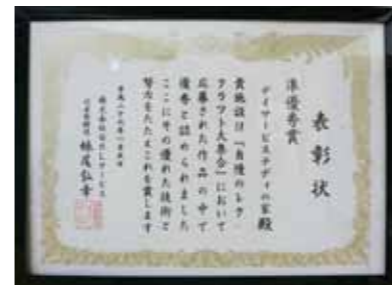 表彰状
準優秀賞
デイサービステディの家殿
貴施設は「自慢のレク・
クラフト大集合」において
応募された作品の中で
優秀と認められました
ここにその優れた技術と
努力をたたえこれを賞します
平成二十六年一月吉日
妹尾弘幸